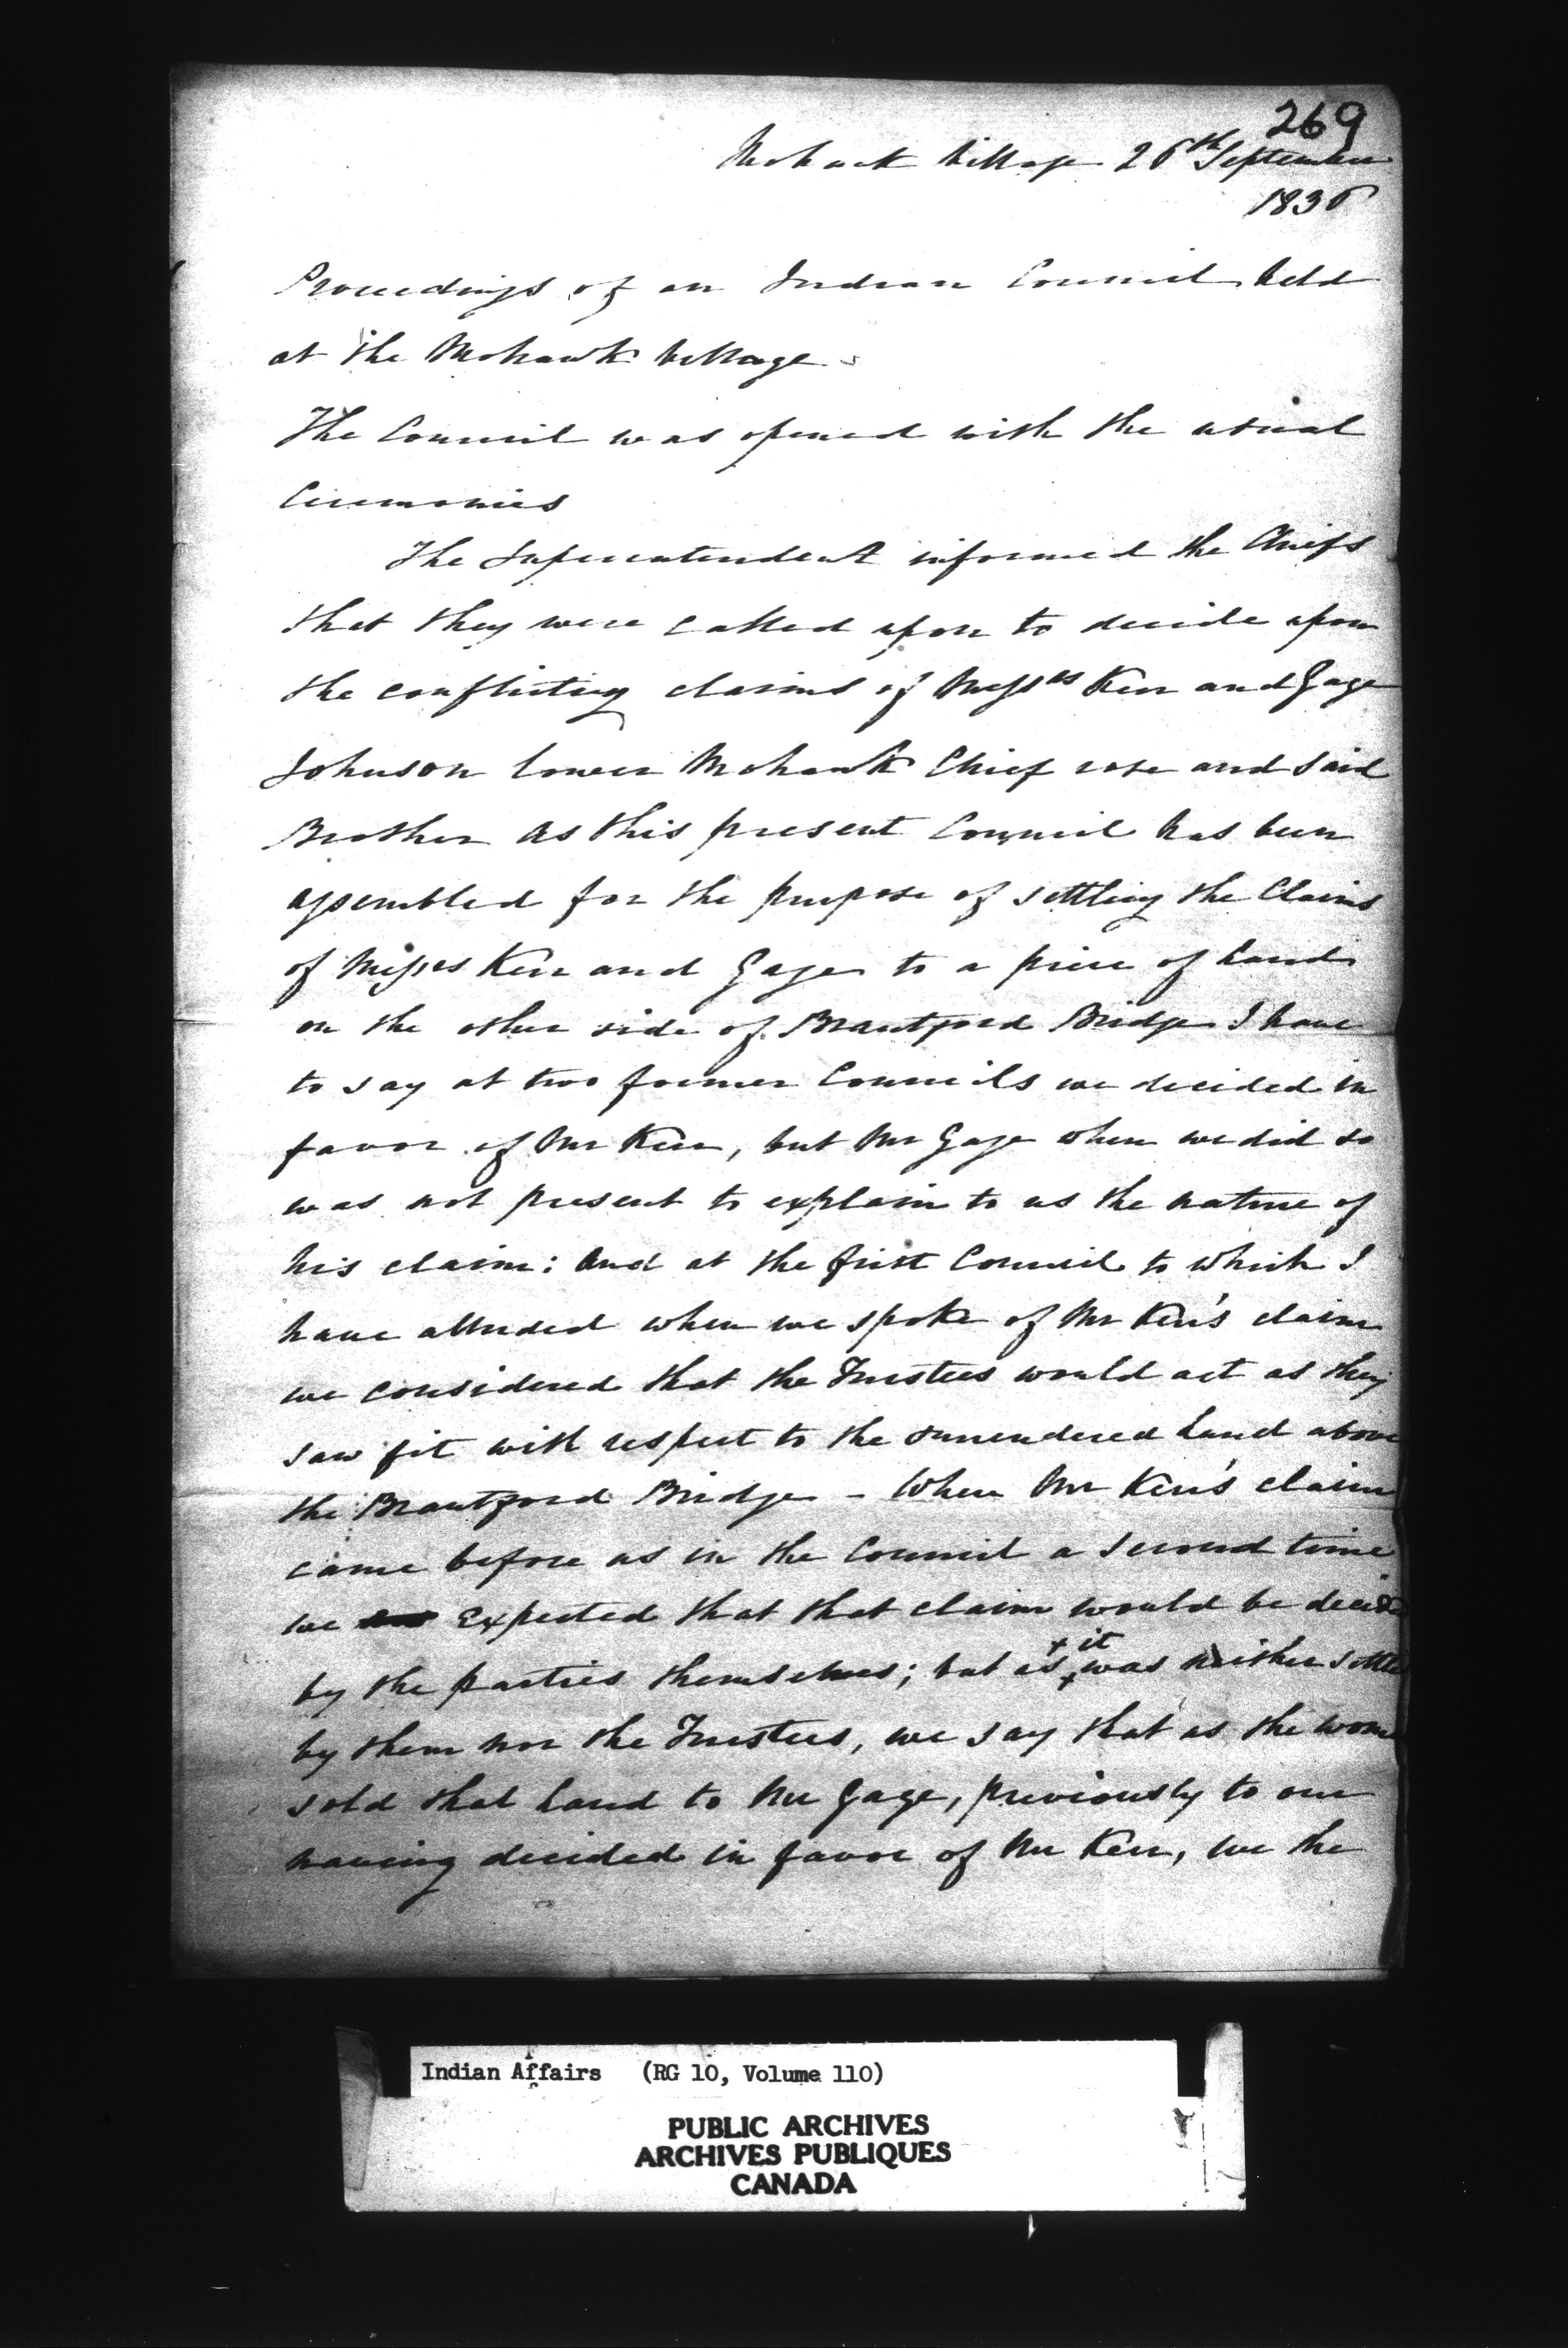 269
Mohawk Village 26th September
1836
Proceedings of an Indian Council held
at the Mohawk Village
The Council was opened with the usual
Ceremonies
The Superintendent informed the Chiefs
that they were called upon to decide upon
the conflicting claims of Messrs Kerr and Gage
Johnson Lower Mohawk Chief rose and said
Brother As this present Council has been
assembled for the purpose of settling the Claims
of Messrs Kerr and Gage to a piece of Land
on the other side of Brantford Bridge I have
to say at two former Councils we decided in
favor of Mr Kerr, but Mr Gage when we did so
was not present to explain to us the nature of
his claim: And at the first Council to which I
have alluded when we spoke of Mr Kerr's claim
we considered that the Trustees would act as they
saw fit with respect to the surrendered Land above
the Brantford Bridge - When Mr Kerr's claim
came before us in the Council a second time
we Expected that that claim would be decide
by the parties themselves; but as it was neither settle
by them nor the Trustees, we say that as the wom
sold that Land to Mr Gage, previously to our
having decided in favor of Mr Kerr, we the
Indian Affairs (RG 10, Volume 110)
PUBLIC ARCHIVES
ARCHIVES PUBLIQUES
CANADA